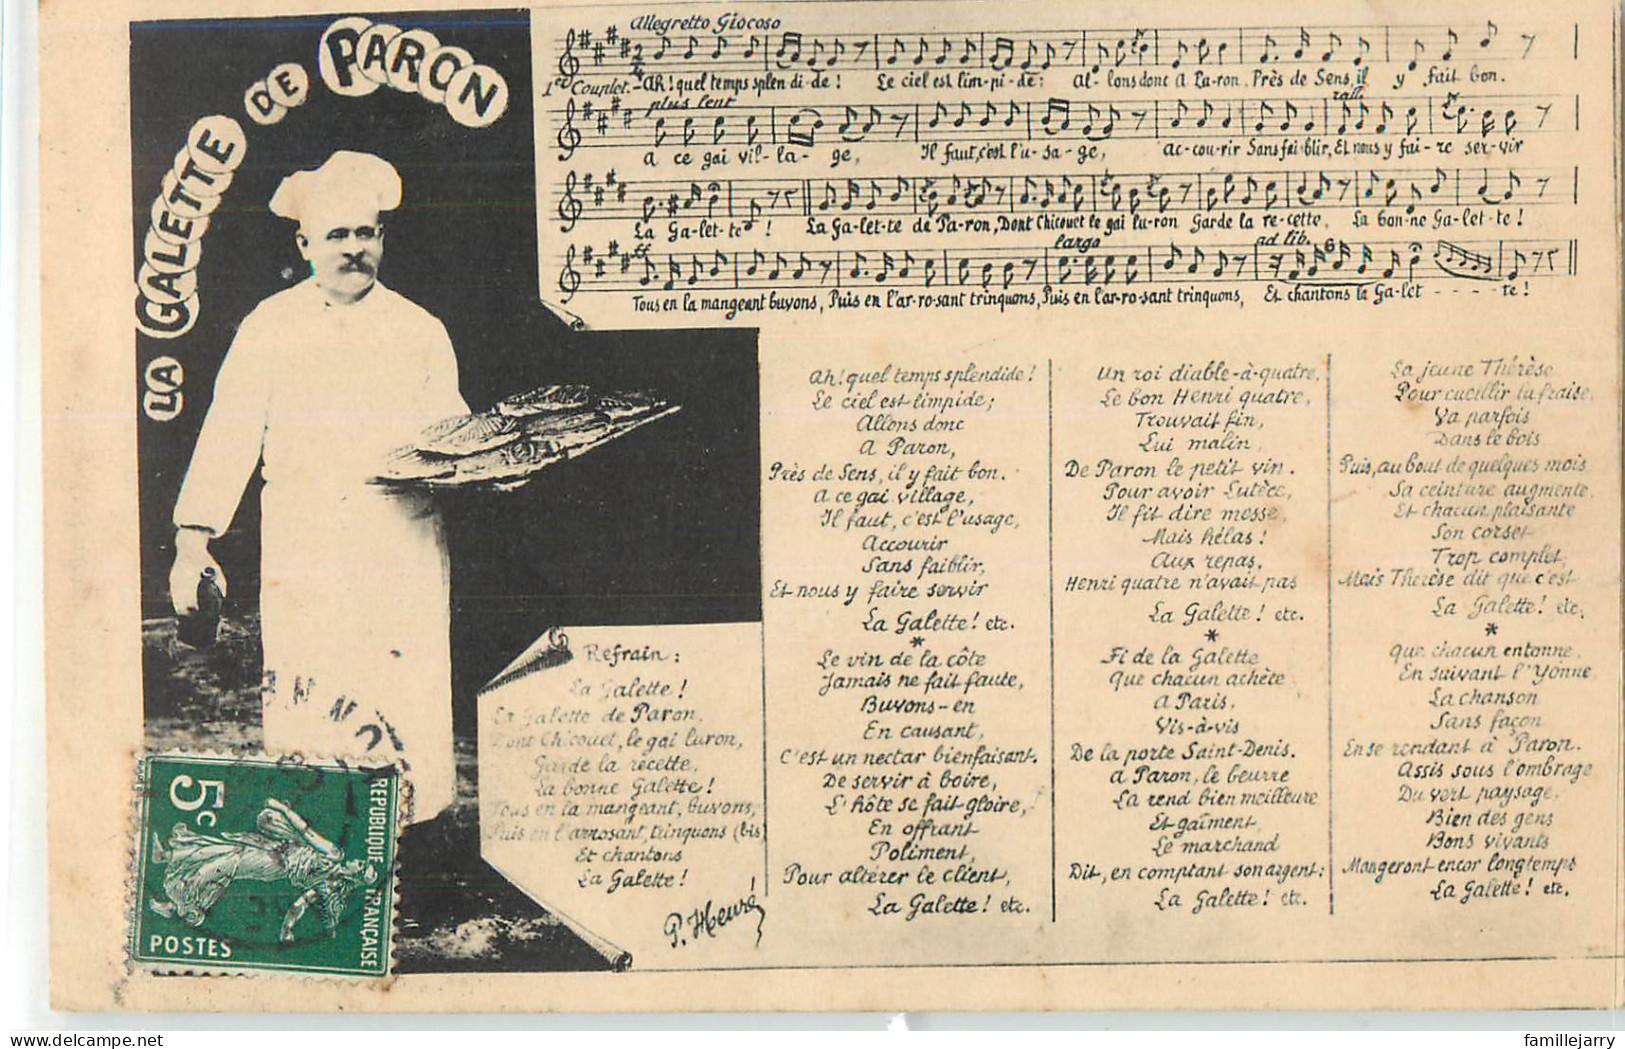 LA GALETTE DE PARON
Allegretto Giocoso
1er Couplet. - Ah! quel temps splen di-de! Le ciel est lim-pi-de; al-lons donc a Pa-ron. Près de Sens, il y fait bon.
plus lent
rall.
a ce gai vil-la-ge, Il faut, c'est l'u-sa-ge, ac-cou-rir Sans fai-blir, Et nous y fai-re ser-vir
La Ga-let-te! La Ga-let-te de Pa-ron, Dont Chicouet le gai lu-ron Garde la re-cette, La bon-ne Ga-let-te!
ff
largo
ad lib.
6
Tous en la mangeant buvons, Puis en l'ar-ro-sant trinquons, Puis en l'ar-ro-sant trinquons, Et chantons la Ga-let - - - - te!
Ah! quel temps splendide!
Le ciel est limpide;
Allons donc
A Paron,
Près de Sens, il y fait bon.
A ce gai village,
Il faut, c'est l'usage,
Accourir
Sans faiblir,
Et nous y faire servir
La Galette! etc.
*
Le vin de la côte
Jamais ne fait faute,
Buvons-en
En causant,
C'est un nectar bienfaisant.
De servir à boire,
L'hôte se fait gloire,
En offrant
Poliment,
Pour altérer le client,
La Galette! etc.
Un roi diable-à-quatre,
Le bon Henri quatre,
Trouvait fin,
Lui malin,
De Paron le petit vin.
Pour avoir Lutèce,
Il fit dire messe,
Mais hélas!
Aux repas,
Henri quatre n'avait pas
La Galette! etc.
*
Fi de la Galette
Que chacun achète
A Paris,
Vis-à-vis
De la porte Saint-Denis.
A Paron, le beurre
La rend bien meilleure
Et gaîment,
Le marchand
Dit, en comptant son argent:
La Galette! etc.
La jeune Thérèse
Pour cueillir la fraise,
Va parfois
Dans le bois
Puis, au bout de quelques mois
Sa ceinture augmente,
Et chacun plaisante
Son corset
Trop complet,
Mais Thérèse dit que c'est
La Galette! etc.
*
Que chacun entonne,
En suivant l'Yonne
La chanson
Sans façon
En se rendant à Paron.
Assis sous l'ombrage
Du vert paysage,
Bien des gens
Bons vivants
Mangeront encor longtemps
La Galette! etc.
Refrain:
La Galette!
La Galette de Paron,
Dont Chicouet, le gai luron,
Garde la recette,
La bonne Galette!
Tous en la mangeant, buvons,
Puis en l'arrosant, trinquons (bis)
Et chantons
La Galette!
P. Heuré
5c
REPUBLIQUE FRANÇAISE
POSTES
famillejarry